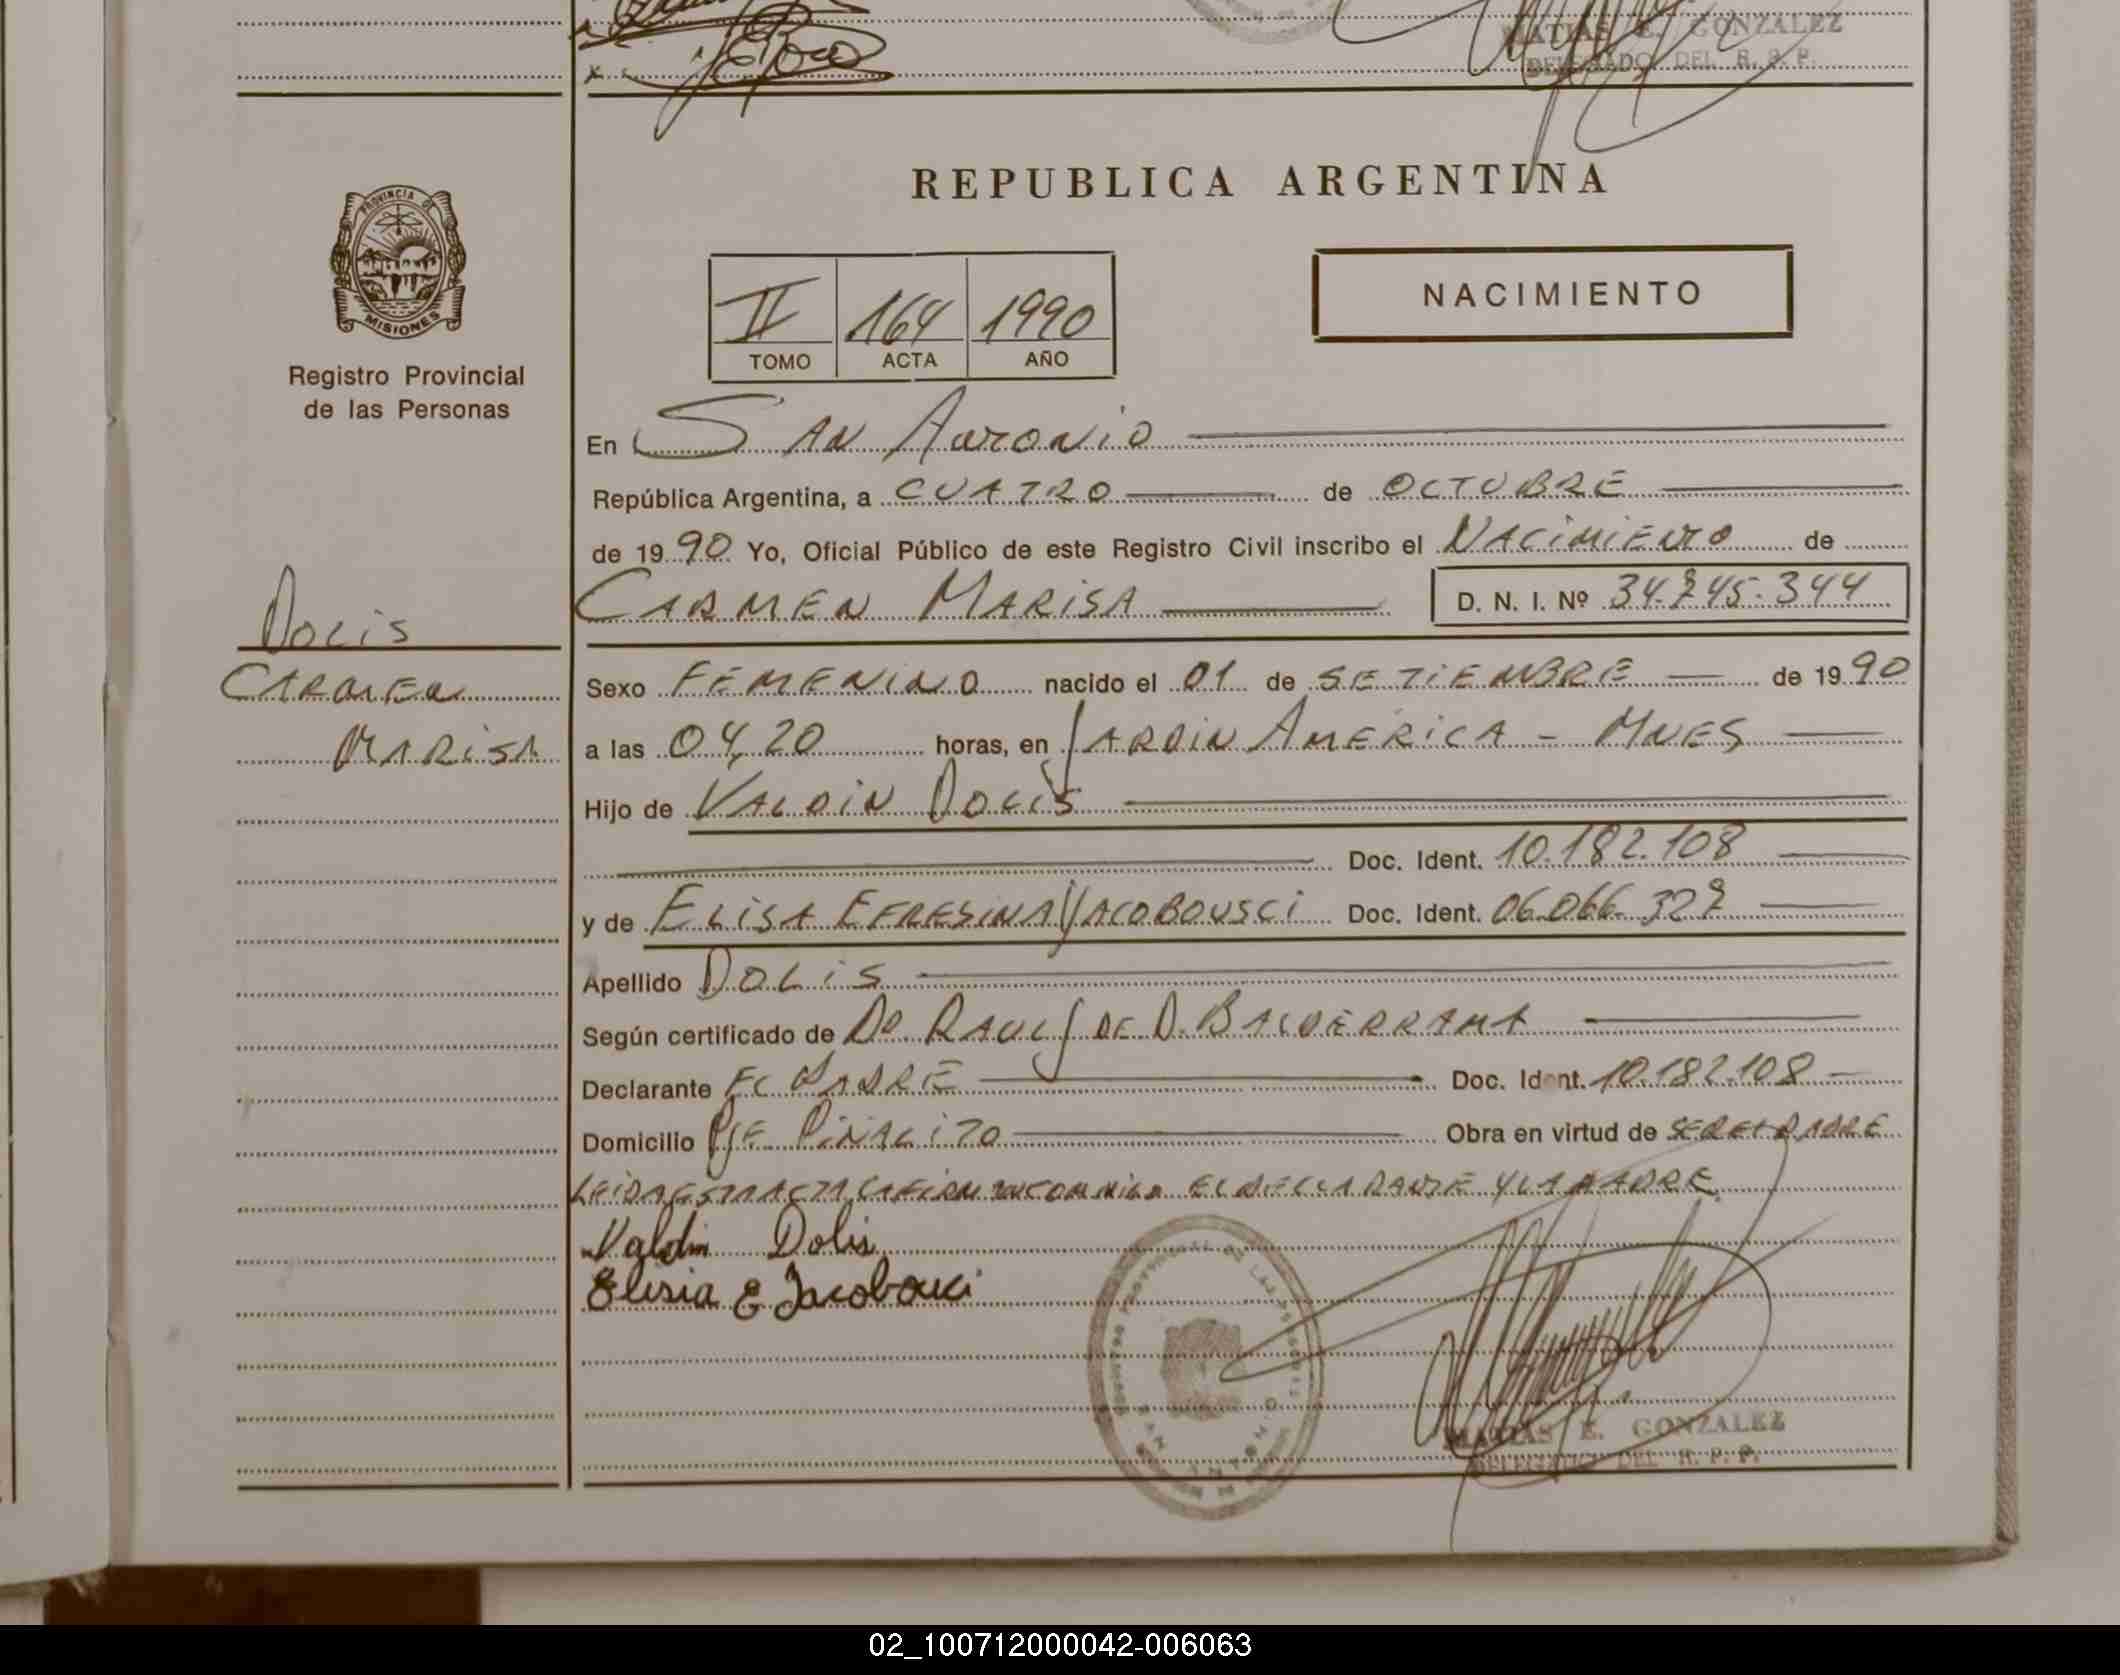 MATIAS E. GONZALEZ
DELEGADO DEL R. P. P.
PROVINCIA DE
MISIONES
Registro Provincial
de las Personas
REPUBLICA ARGENTINA
II 164 1990
TOMO ACTA AÑO
NACIMIENTO
En SAN ANTONIO
República Argentina, a CUATRO de OCTUBRE
de 1990 Yo, Oficial Público de este Registro Civil inscribo el NACIMIENTO de
CARMEN MARISA D. N. I. Nº
DOLIS
CARMEN
MARISA
Sexo FEMENINO nacido el 01 de SETIEMBRE de 1990
a las 04,20 horas, en JARDIN AMERICA - MNES
Hijo de VALDIN DOLIS
Doc. Ident. 10.182.108
y de ELISA EFRESINA JACOBOUSCI Doc. Ident.
Apellido DOLIS
Según certificado de DO RAUL J DE D. BALDERRAMA
Declarante EL PADRE Doc. Ident. 10.182.108
Domicilio PJE PIÑALITO Obra en virtud de SER EL PADRE
LEIDA ESTA ACTA LA FIRMAN CONMIGO EL DECLARANTE Y LA MADRE
Valdin Dolis
Elisia E Jacobouci
MATIAS E. GONZALEZ
DELEGADO DEL R. P. P.
02_100712000042-006063